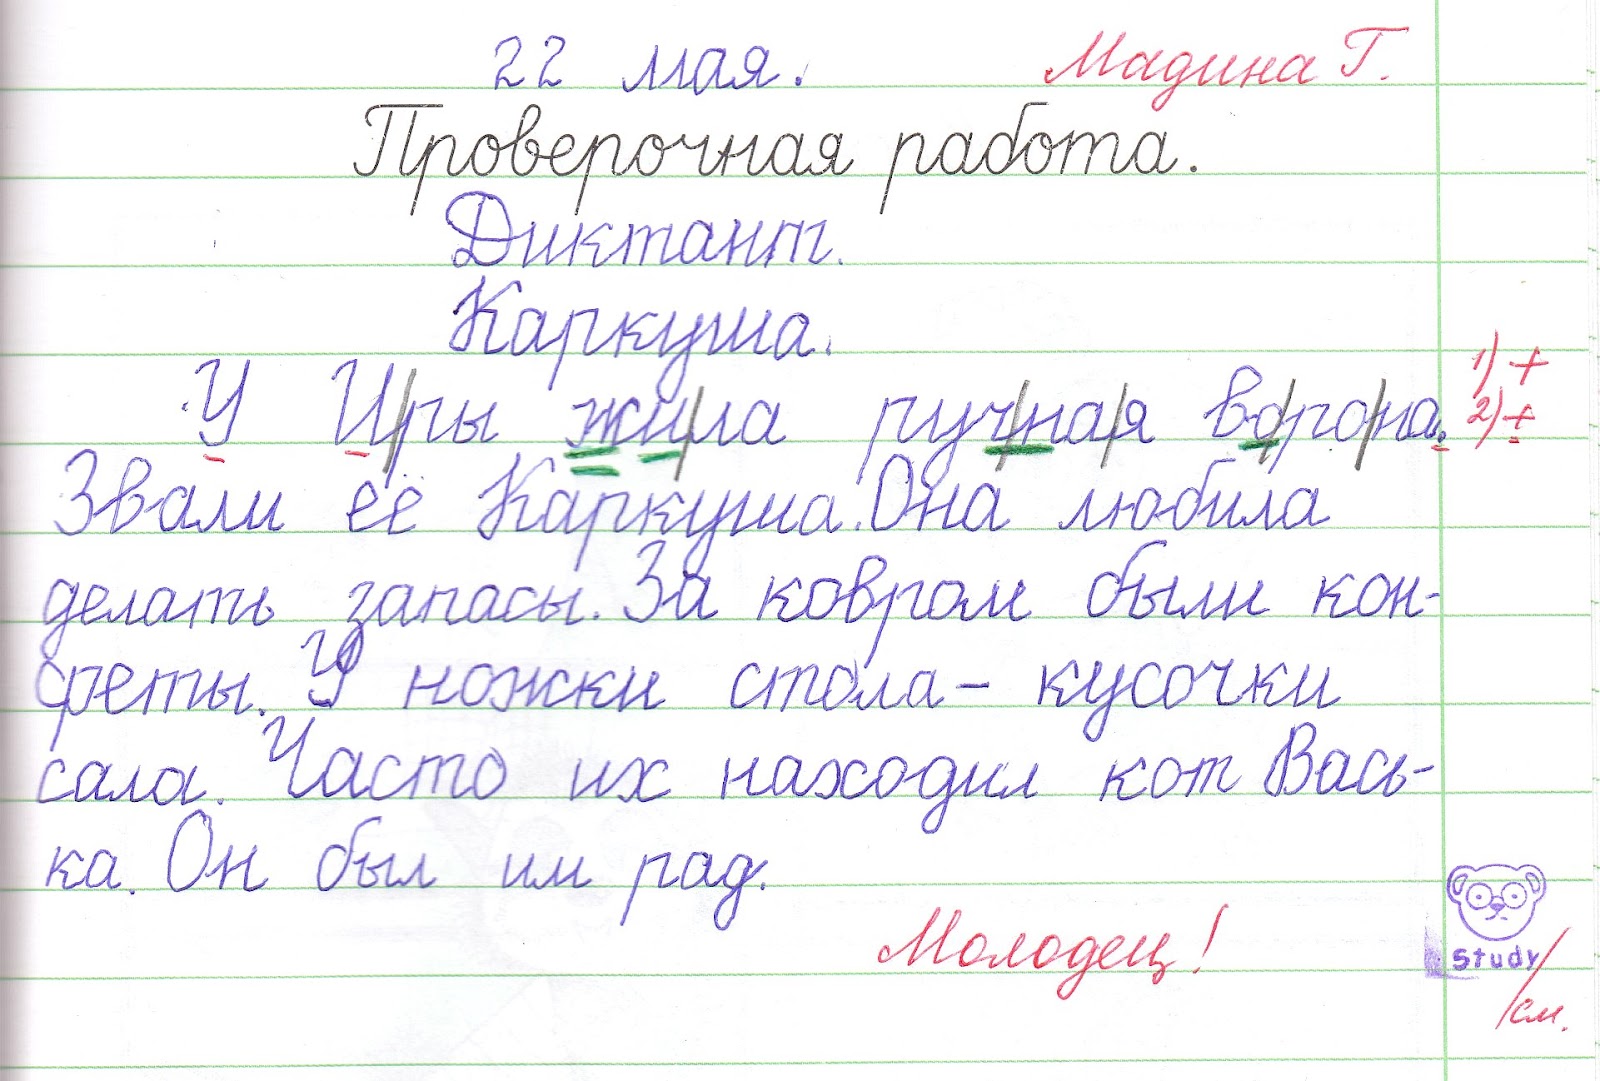 22 мая. Мадина Г.
Проверочная работа.
Диктант.
Каркуша.
У Иры жила ручная ворона. 1) +
Звали её Каркуша. Она любила 2) +
делать запасы. За ковром были кон-
феты. У ножки стола – кусочки
сала. Часто их находил кот Вась-
ка. Он был им рад.
Молодец!
Study
/см.